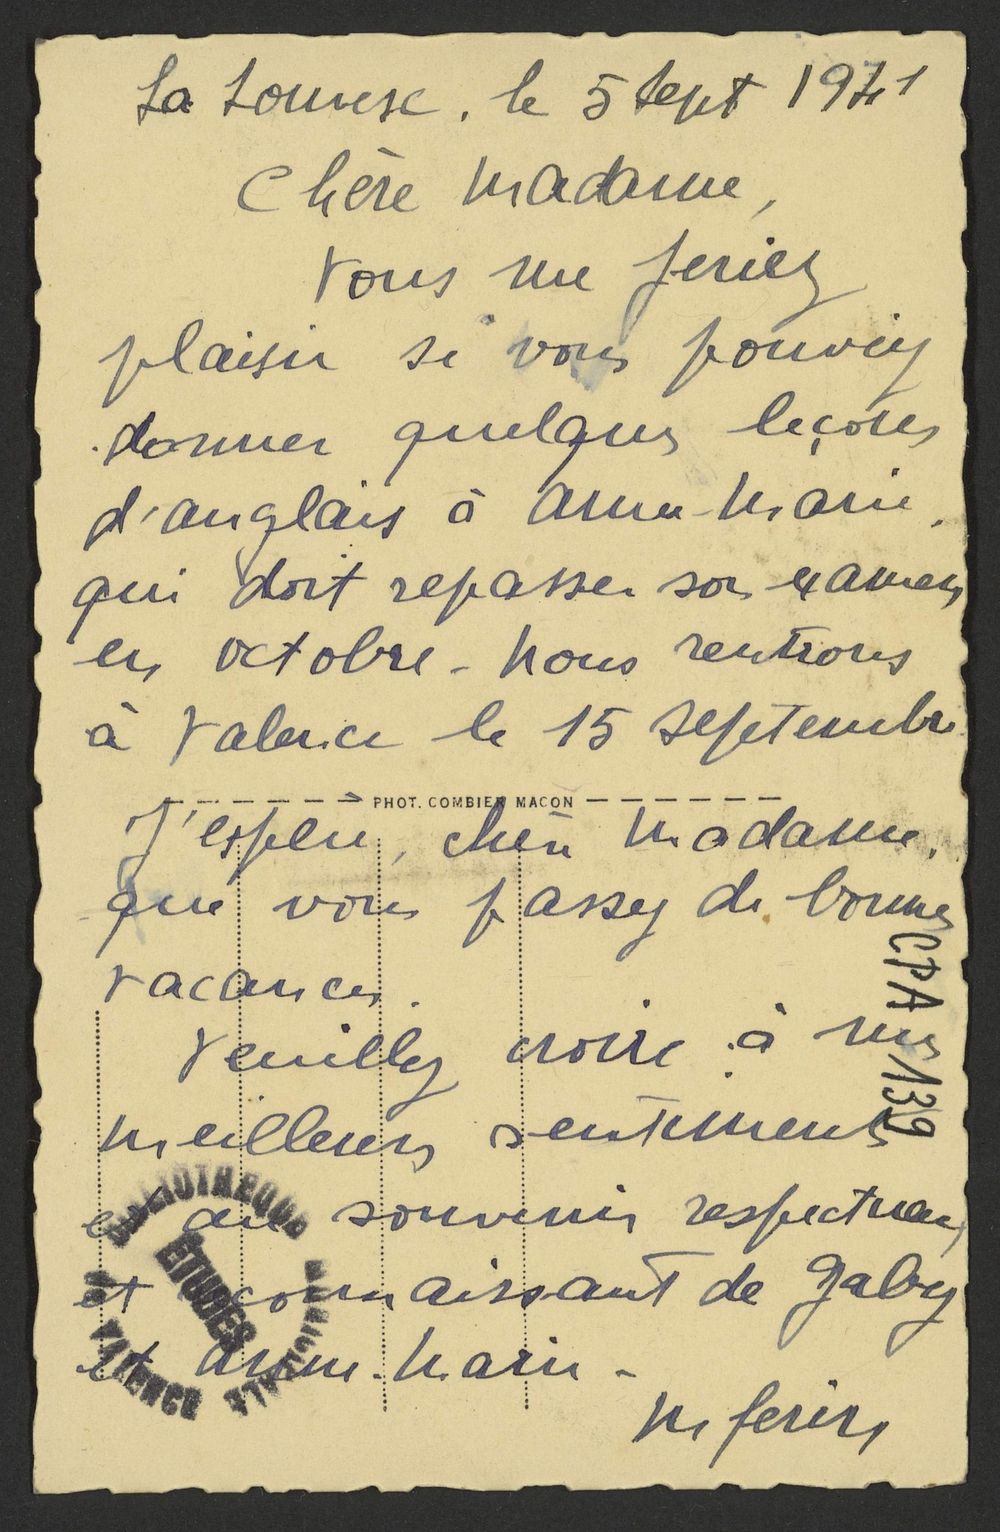 La Louvesc. le 5 Sept 1941
Chère Madame,
Vous me feriez
plaisir si vous pouviez
donner quelques leçons
d'anglais à Anne-Marie,
qui doit repasser son examen
en octobre - Nous rentrons
à Valence le 15 septembre
PHOT. COMBIER MACON
J'espère, chère Madame,
que vous passez de bonnes
vacances.
Veuillez croire à mes
meilleurs sentiments
et au souvenir respectueux
et reconnaissant de Gaby
et Anne-Marie -
CPA 139
BIBLIOTHEQUE
MUNICIPALE
DE VALENCE
ÉTUDES